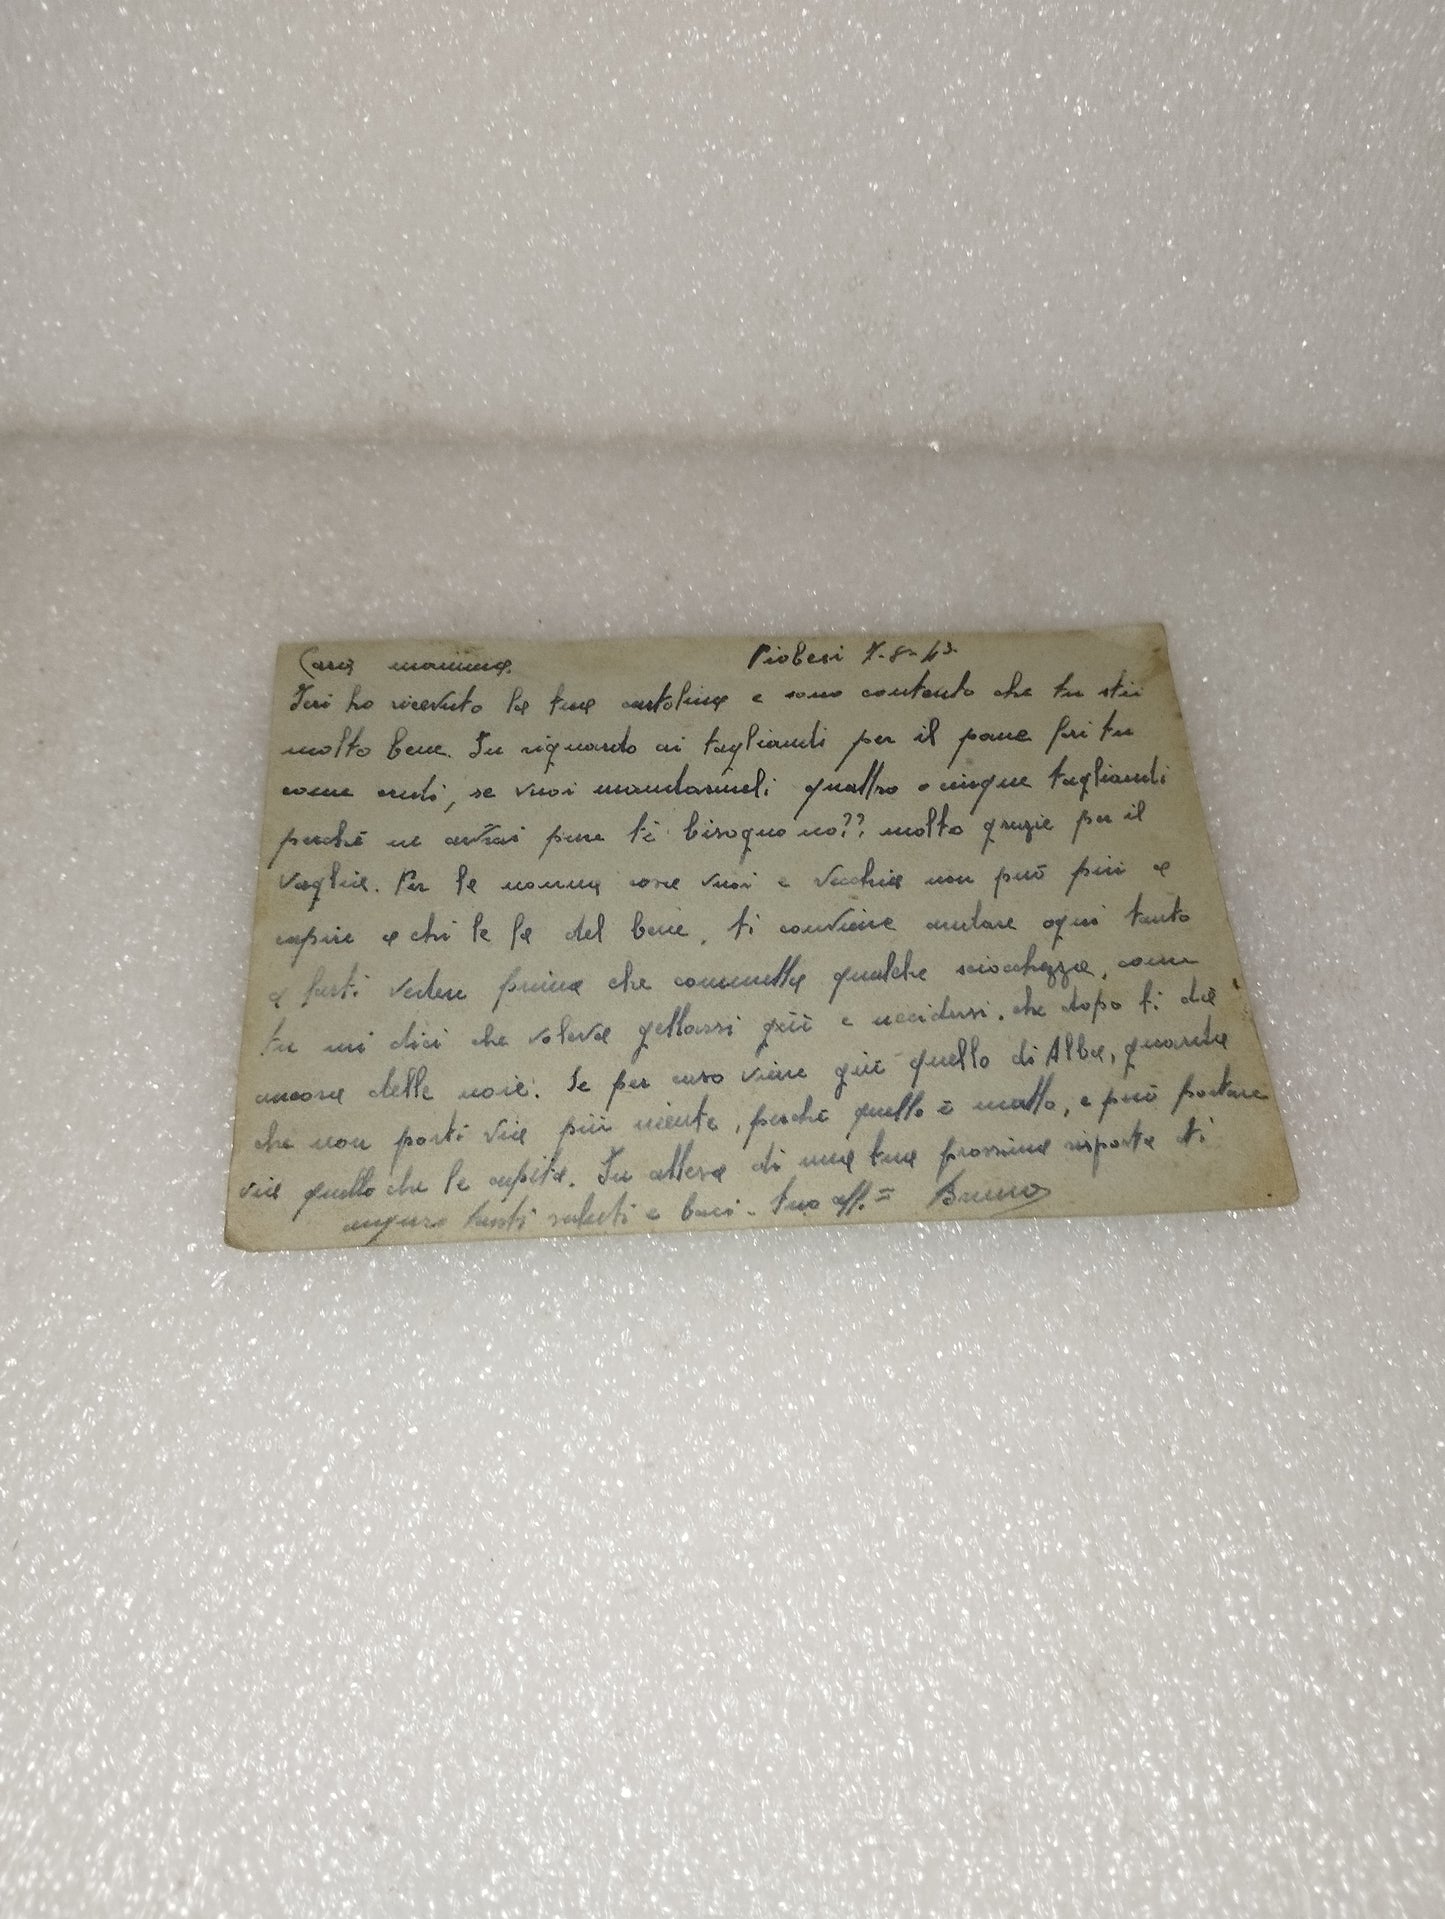 Cara mamma. Piobesi 7-8-43
Ieri ho ricevuto la tua cartolina e sono contento che tu stii
molto bene. In riguardo ai tagliandi per il pane fai tu
come credi, se vuoi mandarmeli quattro o cinque tagliandi
perchè ne avrai pure te bisogno no?? molto grazie per il
vaglia. Per la nonna cosa vuoi è vecchia non può più a
capire a chi le fa del bene, ti conviene andare ogni tanto
a farti vedere prima che commetta qualche sciocchezza, come
tu mi dici che voleva gettarsi giù e uccidersi, che dopo ti dà
ancora delle noie. Se per caso viene giù quello di Alba, guarda
che non porti via più niente, perchè quello è matto, e può portare
via quello che le capita. In attesa di una tua prossima risposta ti
auguro tanti saluti e baci. tuo aff.= Bruno